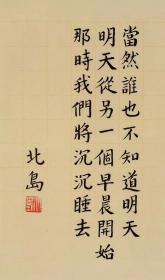 當然誰也不知道明天
明天從另一個早晨開始
那時我們將沉沉睡去
北島